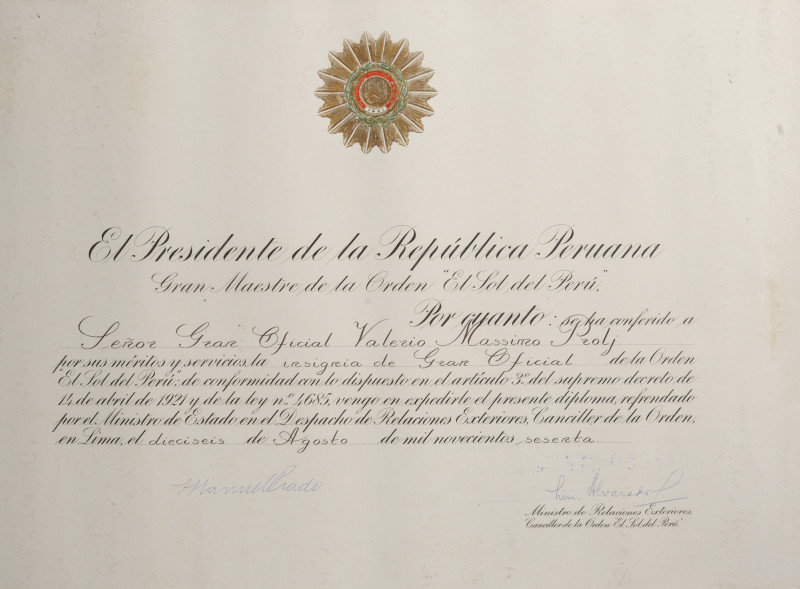 El Presidente de la República Peruana
Gran Maestre de la Orden "El Sol del Perú,"
Por cuanto: se ha conferido a
Señor Gran Oficial Valerio Massimo Prolj
por sus méritos y servicios, la insignia de Gran Oficial de la Orden
"El Sol del Perú"; de conformidad con lo dispuesto en el artículo 3º del supremo decreto de
14 de abril de 1921 y de la ley nº 4685, vengo en expedirle el presente diploma, refrendado
por el Ministro de Estado en el Despacho de Relaciones Exteriores, Canciller de la Orden,
en Lima, el dieciseis de Agosto de mil novecientos sesenta.
Manuel Prado
Alvarado
Ministro de Relaciones Exteriores,
Canciller de la Orden "El Sol del Perú."